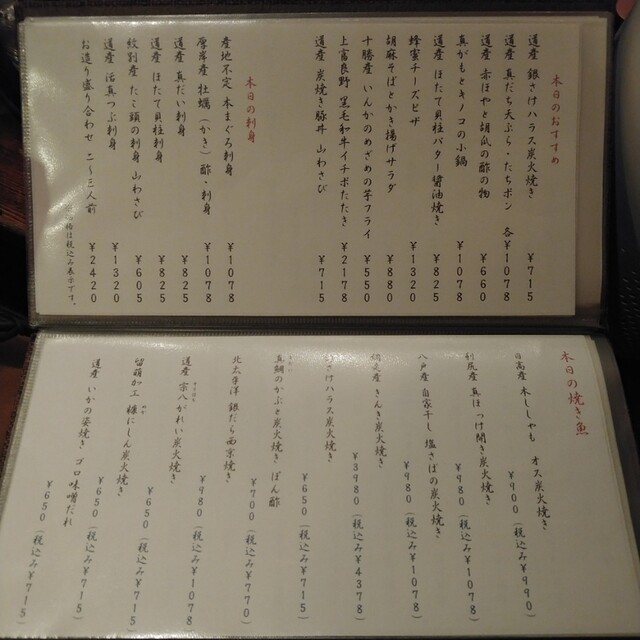 本日のおすすめ
道産 銀さけハラス炭火焼き ¥715
道産 真だち天ぷら・たちポン 各¥1078
道産 赤ほやと胡瓜の酢の物 ¥660
真がもとキノコの小鍋 ¥1078
道産 ほたて貝柱バター醤油焼き ¥825
蜂蜜チーズピザ ¥1320
胡麻そばとかき揚げサラダ ¥880
十勝産 いんかのめざめの芋フライ ¥550
上富良野 黒毛和牛イチボたたき ¥2178
道産 炭焼き豚丼 山わさび ¥715
本日の刺身
産地不定 本まぐろ刺身 ¥1078
厚岸産 牡蠣(かき)酢・刺身 ¥1078
道産 真だい刺身 ¥825
道産 ほたて貝柱刺身 ¥825
紋別産 たこ頭の刺身 山わさび ¥605
道産 活真つぶ刺身 ¥1320
お造り盛り合わせ 二〜三人前 ¥2420
格は税込み表示です。
本日の焼き魚
日高産 本ししゃも オス炭火焼き ¥900(税込み¥990)
利尻産 真ほっけ開き炭火焼き ¥980(税込み¥1078)
八戸産 自家干し 塩さばの炭火焼き ¥980(税込み¥1078)
産 きんき炭火焼き ¥3980(税込み¥4378)
さけハラス炭火焼き ¥650(税込み¥715)
真鯛のかぶと炭火焼き ぽん酢 ¥700(税込み¥770)
北太平洋 銀だら西京焼き ¥980(税込み¥1078)
道産 宗八がれい炭火焼き ¥650(税込み¥715)
留萌加工 糠にしん炭火焼き ¥650(税込み¥715)
道産 いかの姿焼き ゴロ味噌だれ ¥650(税込み¥715)